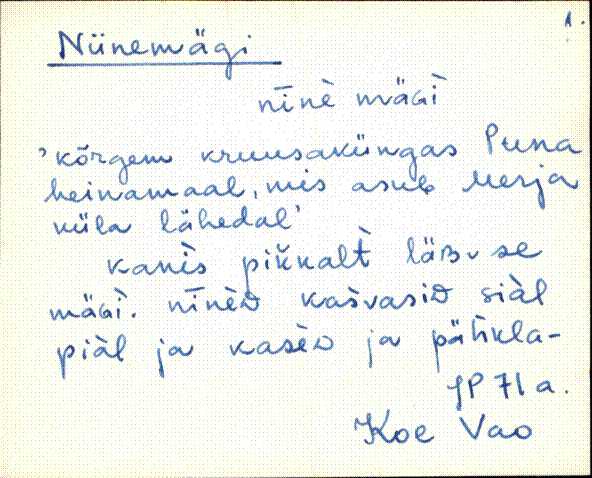 1.
Niinemägi
nīnè mäGì
'kõrgem kruusaküngas Puna
heinamaal, mis asub Uerja
küla lähedal'
kanès pikkalt̀ läB̬ se
mäGì. nīnèD kašvasiD siàl
piàl ja kasèD ja pähkla-
JP 71 a.
Koe Vao